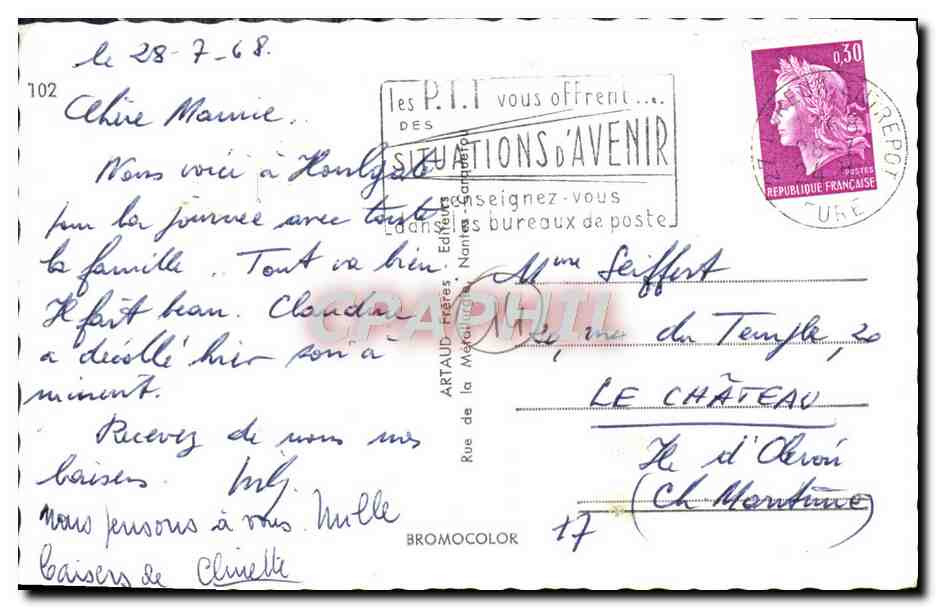 le 28-7-68.
102
Chère Mamie..
Nous voici à Houlgate
pour la journée avec toute
la famille.. Tout va bien.
Il fait beau. Claudine
a décollé hier soir à
minuit.
Recevez de nous nos
baisers.
nous pensons à vous. Mille
baisers de Clinette
les P.T.T vous offrent....
DES
SITUATIONS D'AVENIR
renseignez-vous
dans les bureaux de poste
0,30
POSTES
REPUBLIQUE FRANÇAISE
ENTREPOT
EURE
ARTAUD Frères, Editeurs
Rue de la Métallurgie, Nantes-Carquefou
Mme Seiffert
20, rue du Temple, 20
LE CHÂTEAU
Ile d'Oléron
(Ch. Maritime)
17
BROMOCOLOR
CPAPHIL